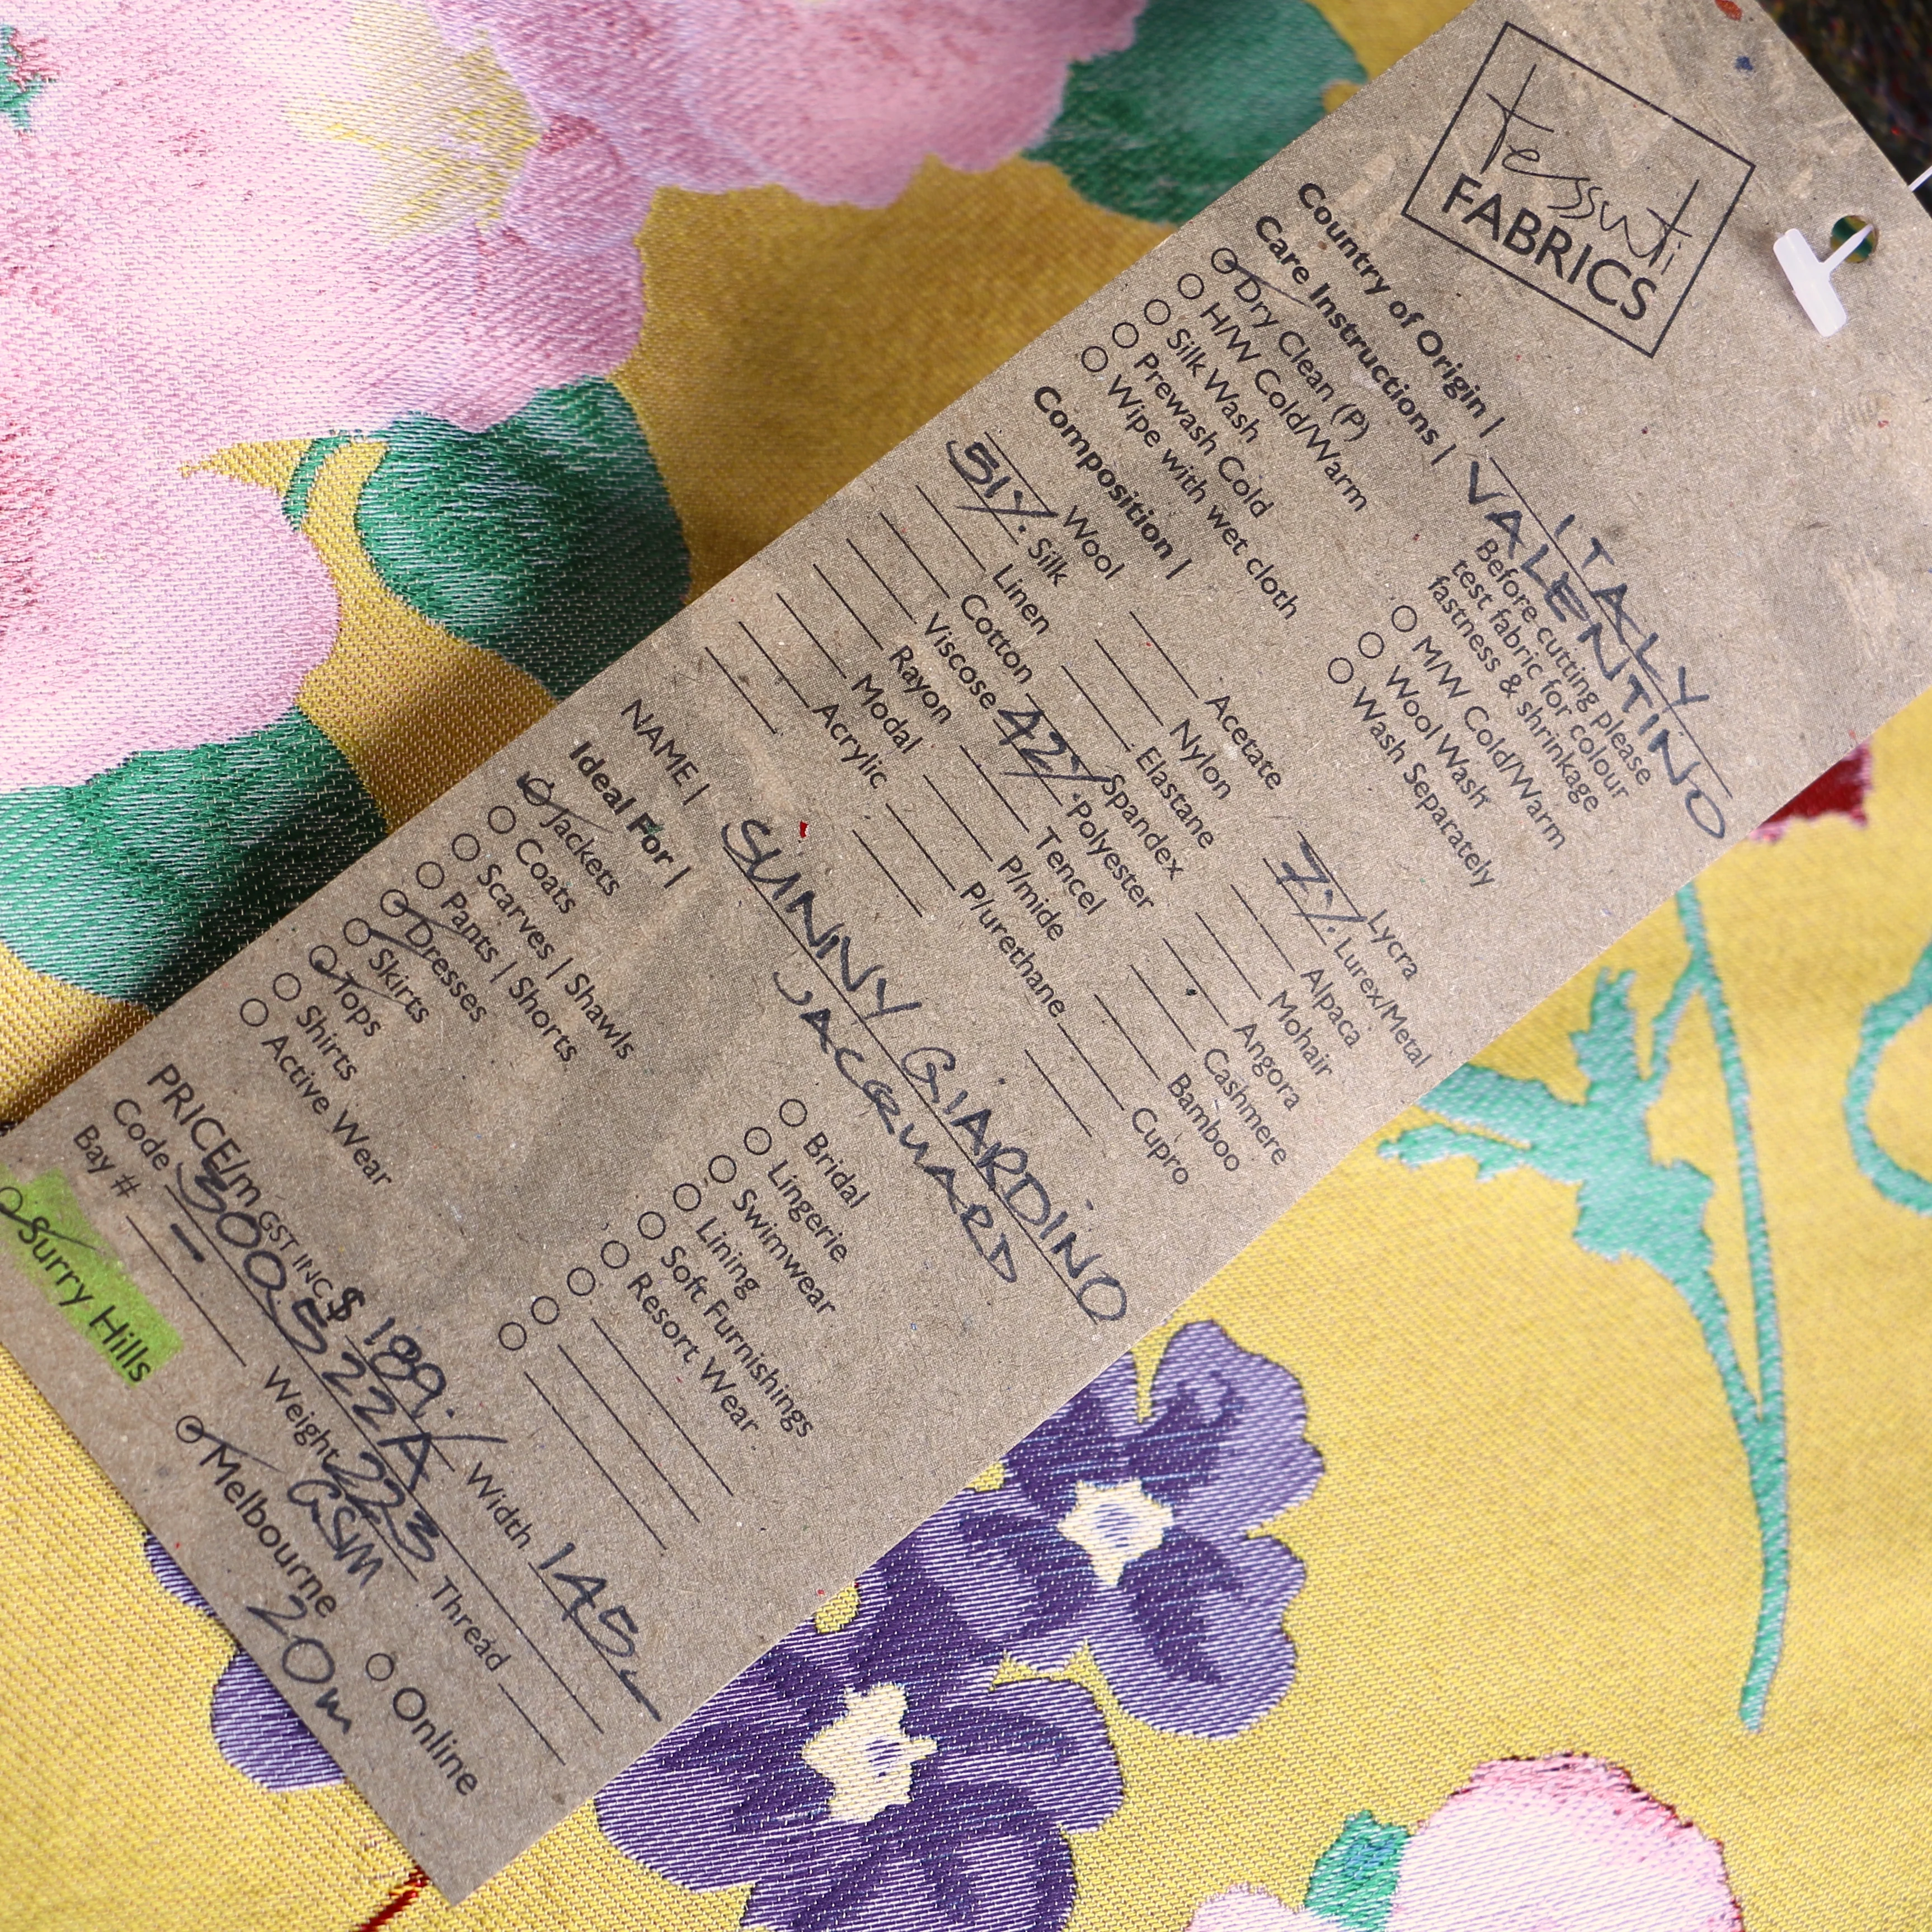 tessuti
FABRICS
Country of Origin | ITALY
VALENTINO
Care Instructions |
Before cutting please
test fabric for colour
fastness & shrinkage
Dry Clean (P)
H/W Cold/Warm
Silk Wash
Prewash Cold
Wipe with wet cloth
M/W Cold/Warm
Wool Wash
Wash Separately
Composition |
Wool
51% Silk
Linen
Cotton
Viscose
Rayon
Modal
Acrylic
Acetate
Nylon
Elastane
Spandex
42% Polyester
Tencel
P/mide
P/urethane
Lycra
7% Lurex/Metal
Alpaca
Mohair
Angora
Cashmere
Bamboo
Cupro
NAME | SUNNY GIARDINO
JACQUARD
Ideal For |
Jackets
Coats
Scarves | Shawls
Pants | Shorts
Dresses
Skirts
Tops
Shirts
Active Wear
Bridal
Lingerie
Swimwear
Lining
Soft Furnishings
Resort Wear
PRICE/m GST INC $ 189./ Width 145
Code 300522A Thread
Bay # – Weight 223
GSM
Surry Hills Melbourne Online
20m